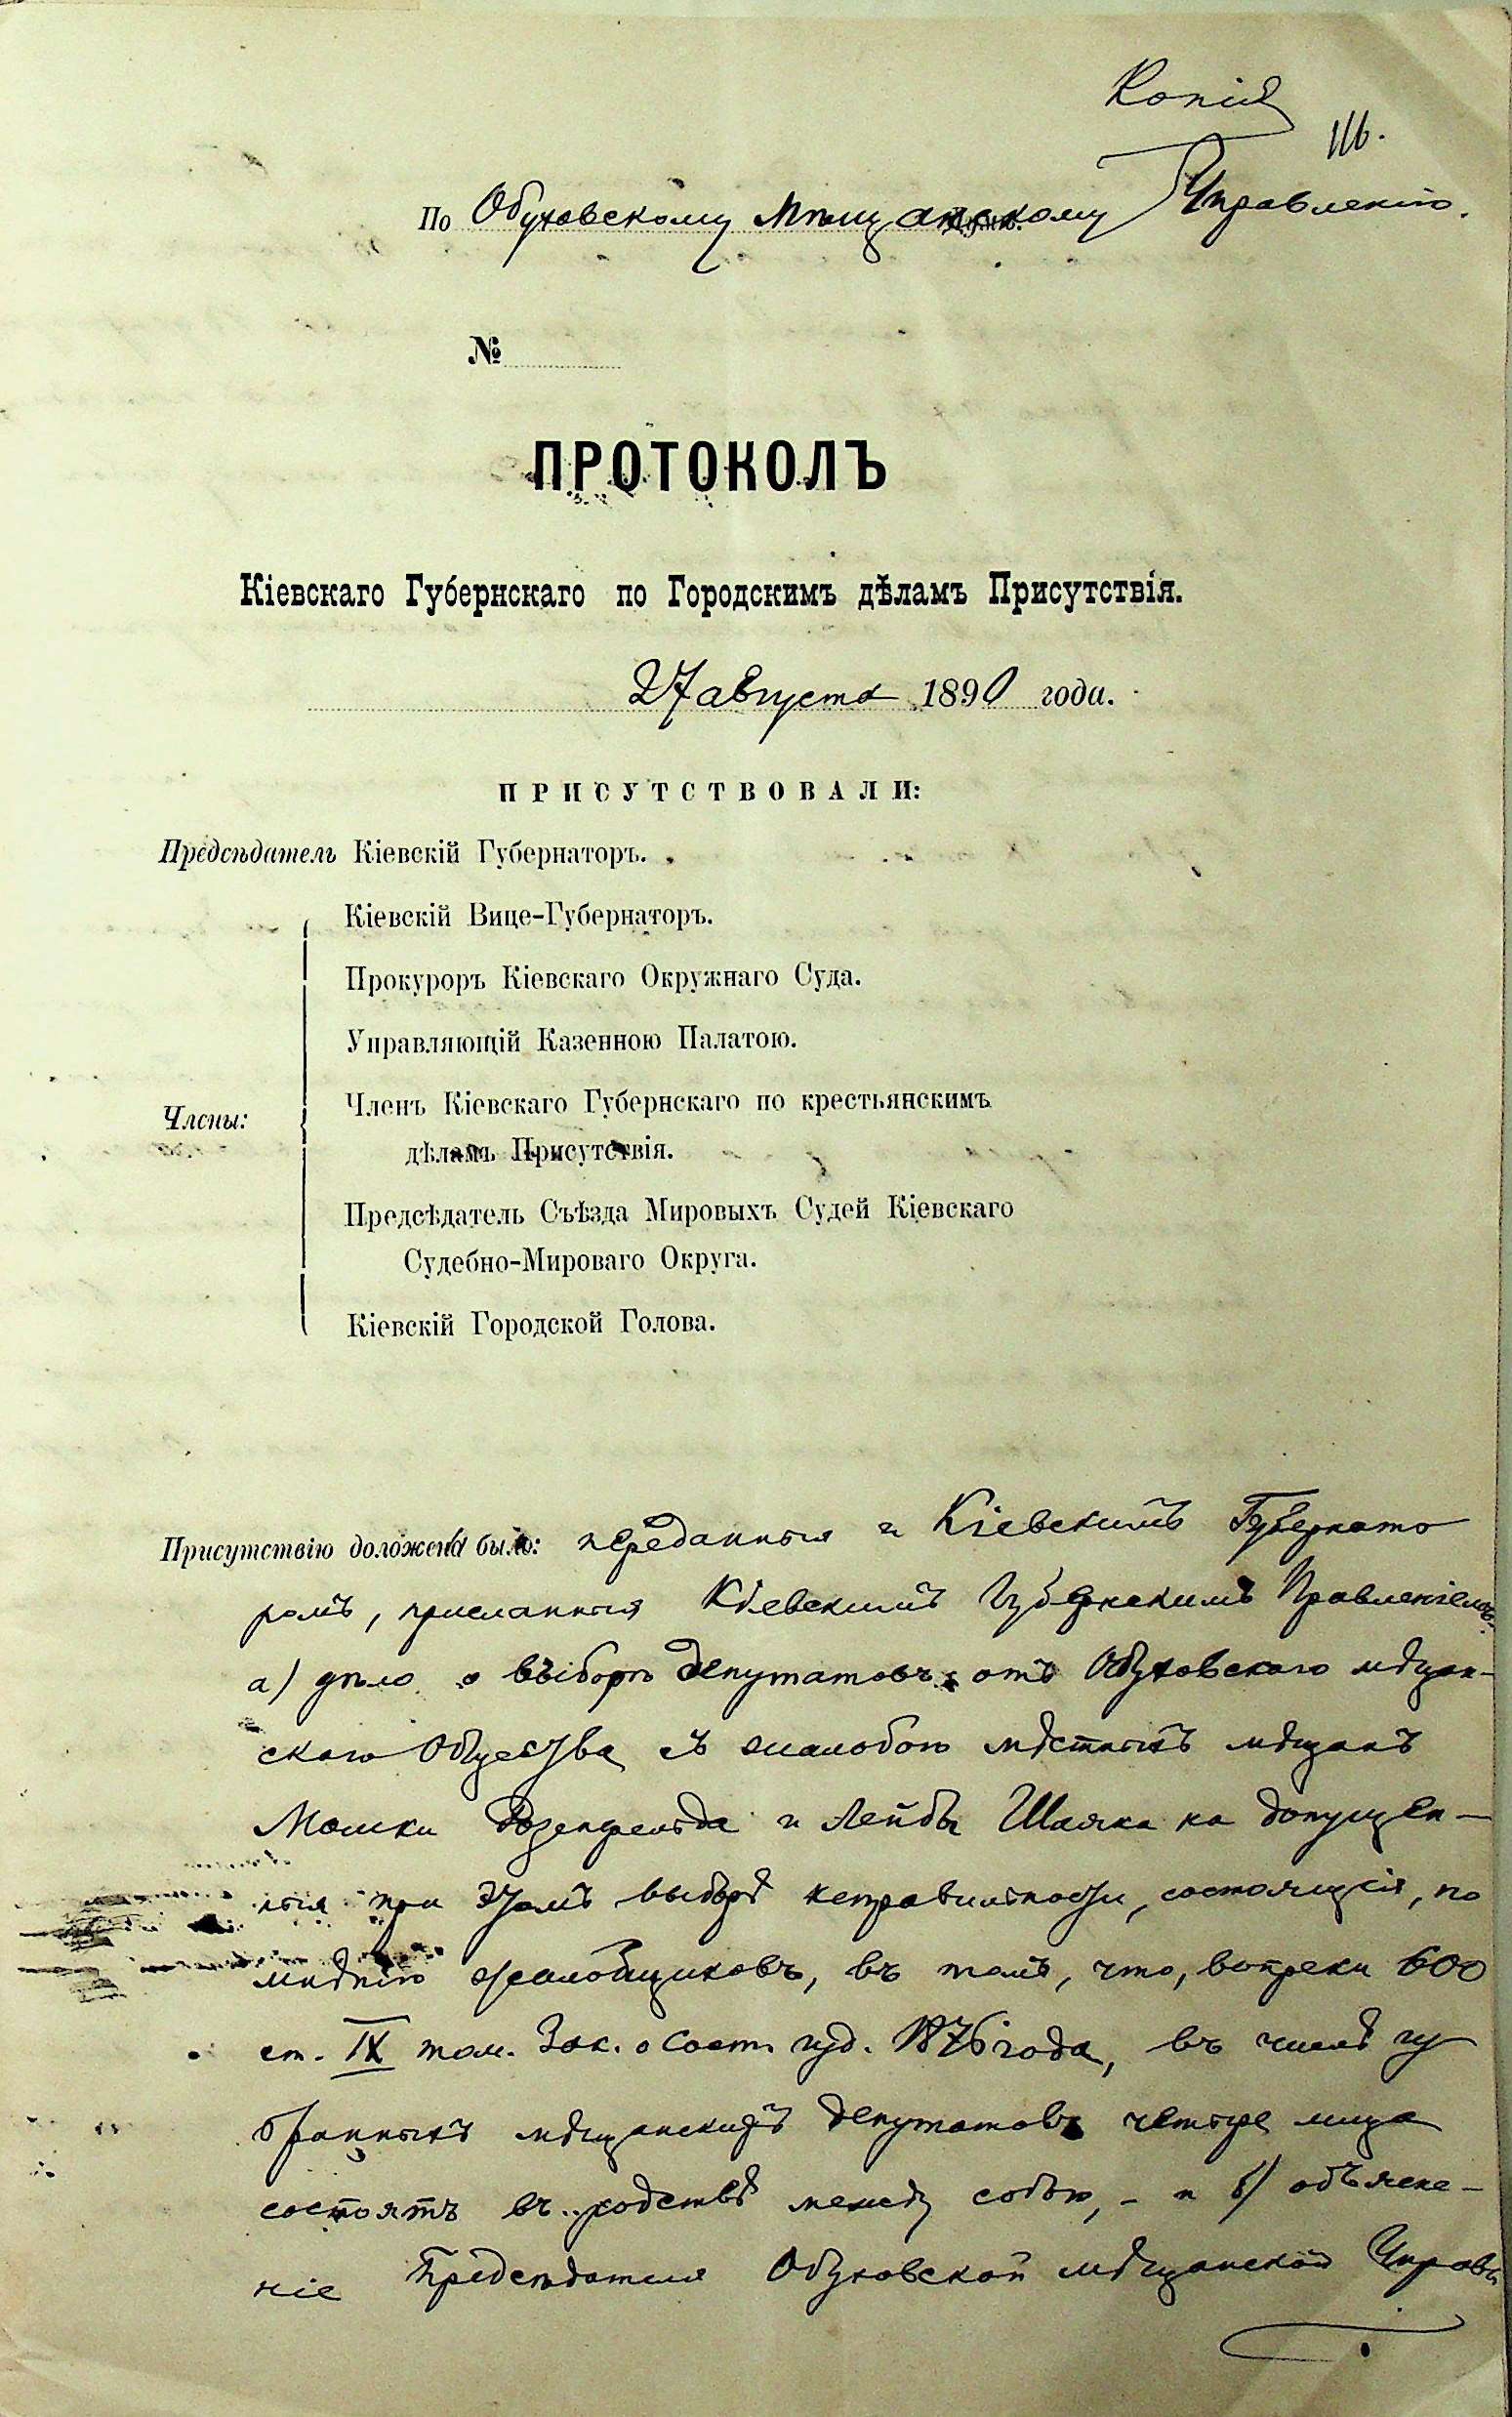 Копія
116.
По Обуховскому Мѣщанскому Управленію.
№
ПРОТОКОЛЪ
Кіевскаго Губернскаго по Городскимъ дѣламъ Присутствія.
27 августа 1890 года.
ПРИСУТСТВОВАЛИ:
Предсѣдатель Кіевскій Губернаторъ.
Кіевскій Вице-Губернаторъ.
Прокуроръ Кіевскаго Окружнаго Суда.
Управляющій Казенною Палатою.
Члены:
Членъ Кіевскаго Губернскаго по крестьянскимъ
дѣламъ Присутствія.
Предсѣдатель Съѣзда Мировыхъ Судей Кіевскаго
Судебно-Мироваго Округа.
Кіевскій Городской Голова.
Присутствію доложены были: переданныя г. Кіевскимъ Губернато
ромъ, присланныя Кіевскимъ Губернскимъ Правленіемъ:
а) дѣло о выборѣ депутатовъ отъ Обуховскаго мѣщан-
скаго Общества съ жалобою мѣстныхъ мѣщанъ
Мошки Розенфельда и Лейбы Шаяка на допущен-
ныя при этомъ выборѣ неправильности, состоящія, по
мнѣнію жалобщиковъ, въ томъ, что, вопреки 600
ст. IX том. Зак. о Сост. изд. 1876 года, въ числѣ из
бранныхъ мѣщанскихъ депутатовъ четыре лица
состоятъ въ родствѣ между собою, - и б) объясне-
ніе Предсѣдателя Обуховской мѣщанской Управы